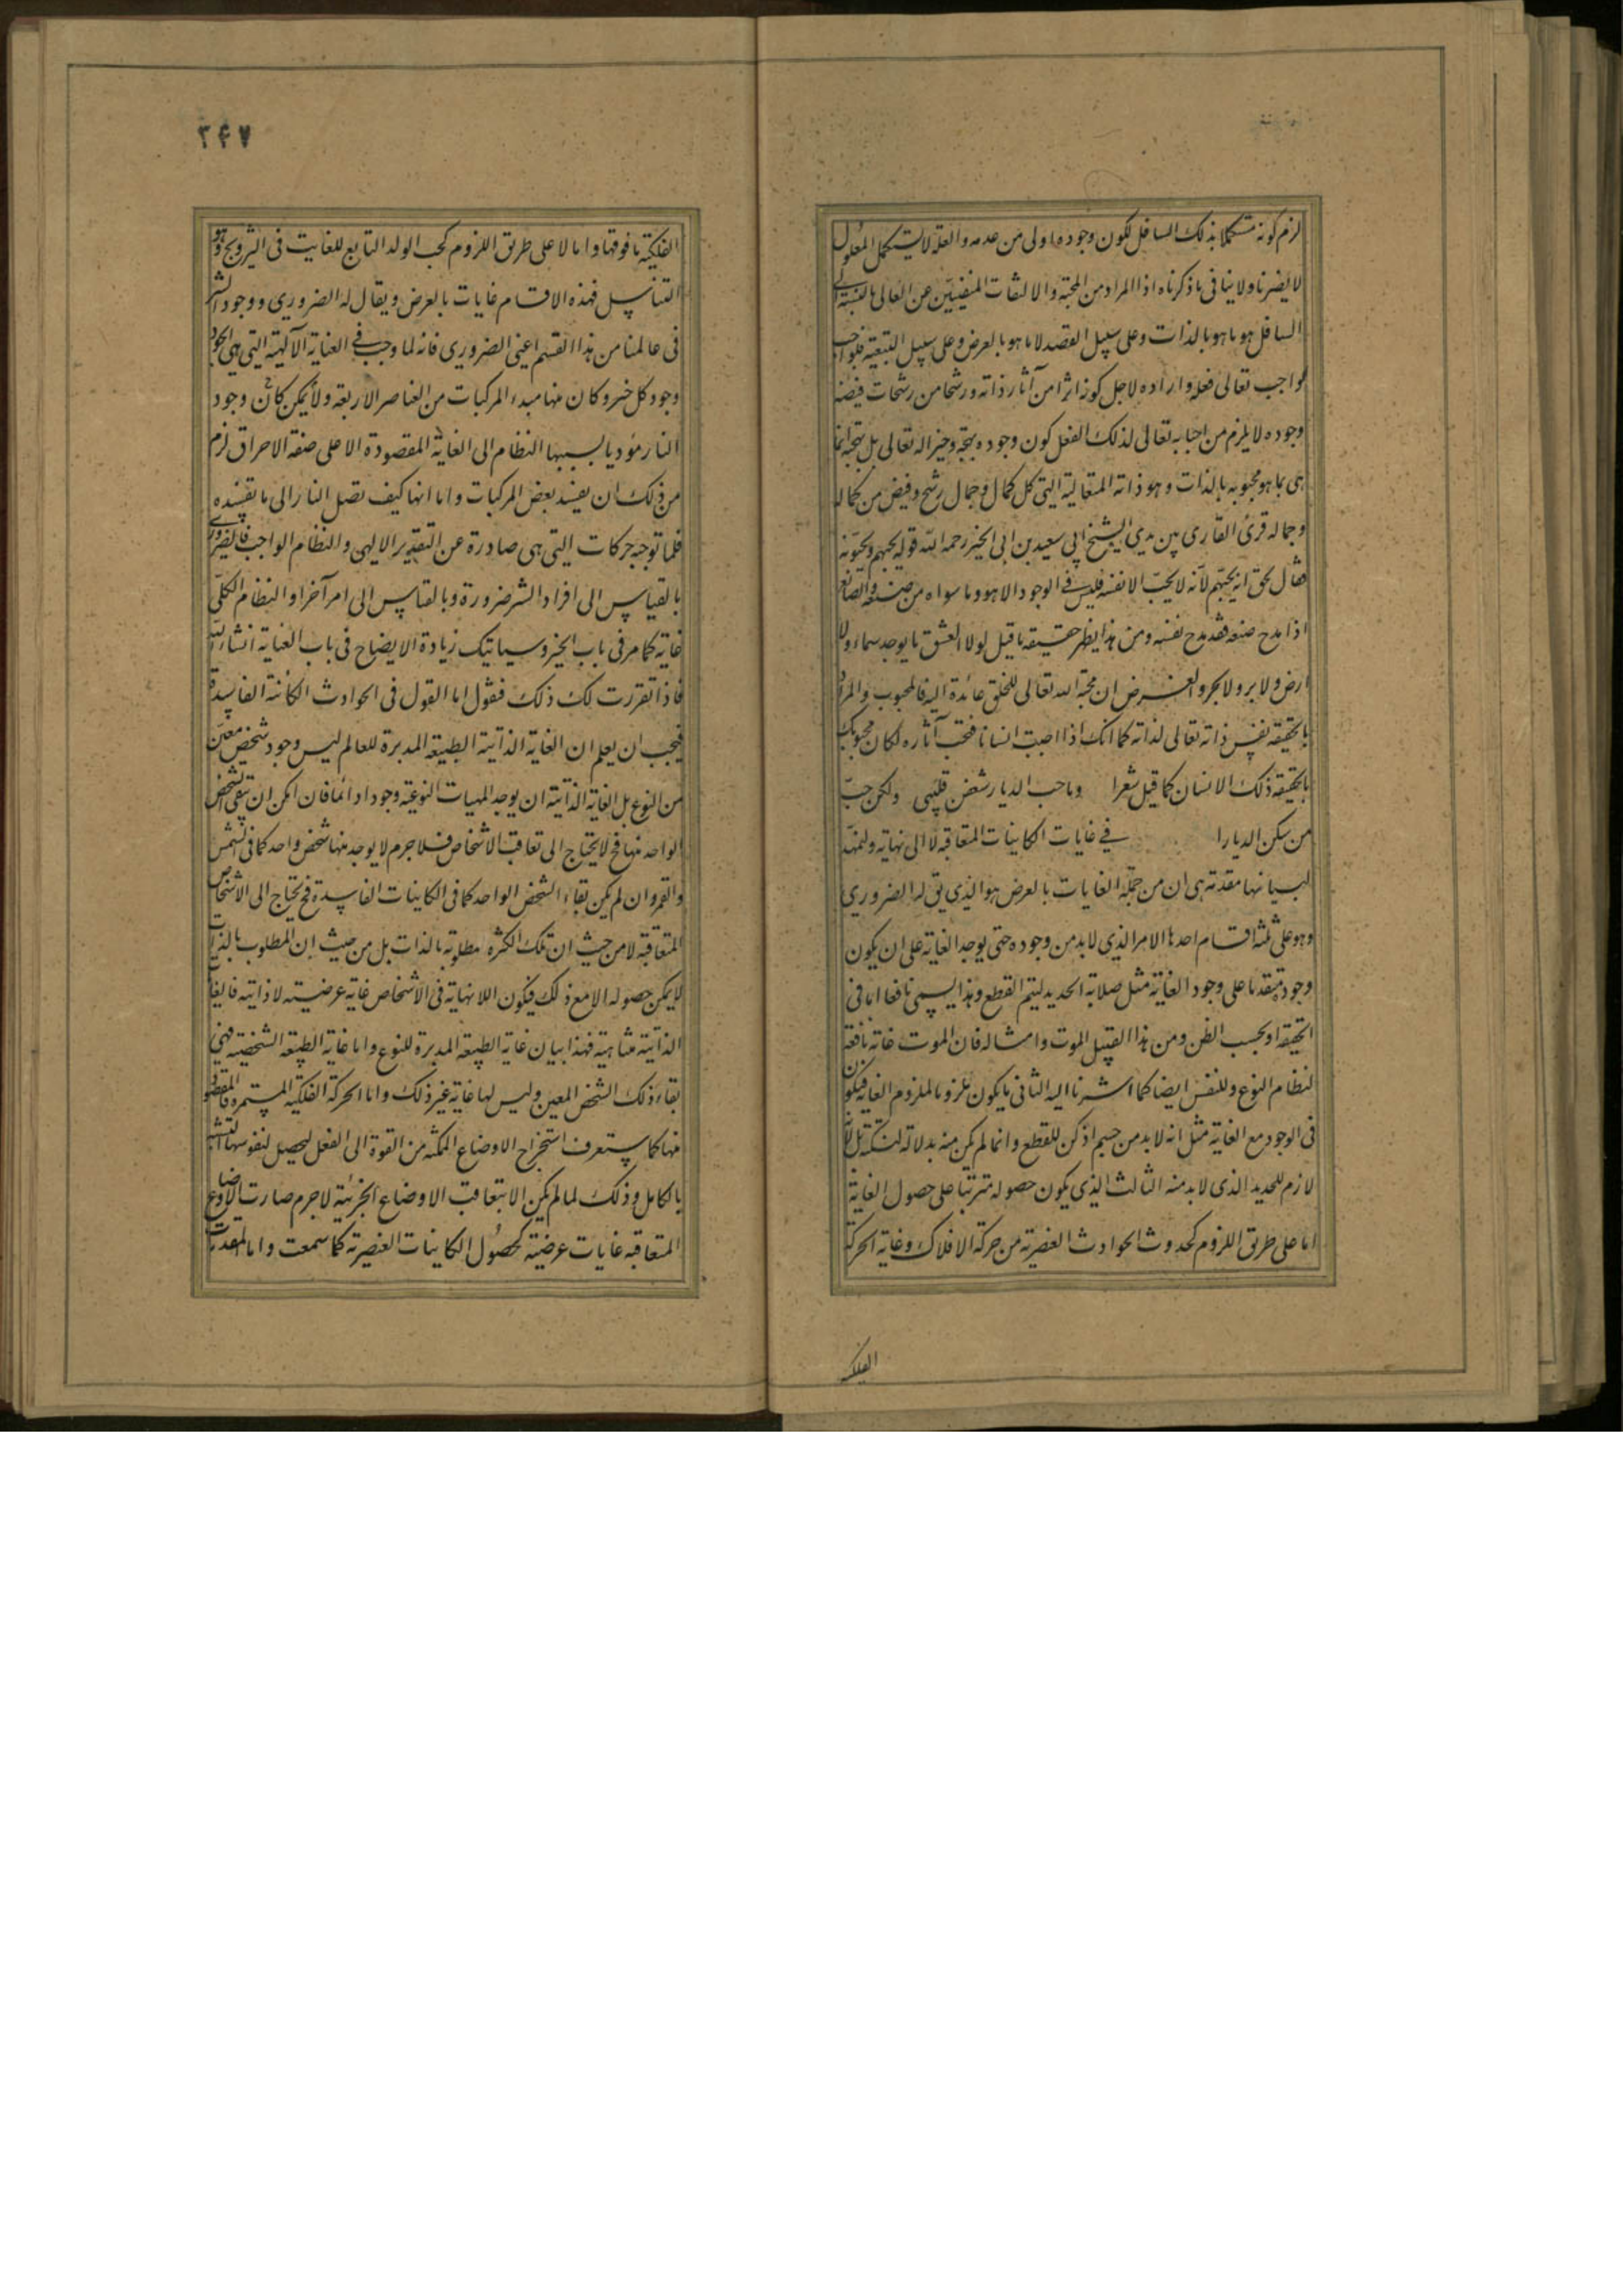 لزم كونه مستكملا بذلك السافل لكون وجوده اولى من عدمه والعلة لا يستكمل المعلول
لا يضرنا ولا ينافى ما ذكرناه اذا المراد من المحبة والالتفات المنفيين عن العالى بالنسبة الى
السافل هو ما هو بالذات وعلى سبيل القصد لا ما هو بالعرض وعلى سبيل التبعية فلو احب
الواجب تعالى فعله واراده لاجل كونه اثرا من آثار ذاته ورشحا من رشحات فيضه
وجوده لا يلزم من احبابه تعالى لذلك الفعل كون وجوده بهجة وخيرا له تعالى بل بهجته انما
هى بما هو محبوبه بالذات وهو ذاته المتعالية التى كل كمال وجمال رشح وفيض من كماله
وجماله قرئ القارى بين يدى الشيخ ابى سعيد بن ابى الخير رحمه الله قوله يحبهم ويحبونه
فقال بحق انه يحبهم لانه لا يحب الا نفسه فليس فى الوجود الا هو وما سواه من صنعه والصانع
اذا مدح صنعه فقد مدح نفسه ومن هذا يظهر حقيقة ما قيل لولا العشق ما يوجد سماء ولا
ارض ولا بر ولا بحر والغرض ان محبة الله تعالى للخلق عائدة اليه فالمحبوب والمراد
بالحقيقة نفس ذاته تعالى لذاته كما انك اذا احببت انسانا فتحب آثاره لكان محبوبك
بالحقيقة ذلك الانسان كما قيل شعرا وما حب الديار شغفن قلبى ولكن حب
من سكن الديارا فى غايات الكاينات المتعاقبة لا الى نهاية ولنمهد
لبيانها مقدمة هى ان من جملة الغايات بالعرض هو الذى يق له الضرورى
وهو على ثلثة اقسام احدها الامر الذى لا بد من وجوده حتى يوجد الغاية على ان يكون
وجوده متقدما على وجود الغاية مثل صلابة الحديد ليتم القطع وهذا يسمى نافعا اما فى
الحقيقة او بحسب الظن ومن هذا القبيل الموت وامثاله فان الموت غاية نافعة
لنظام النوع وللنفس ايضا كما اشرنا اليه الثانى ما يكون ملزوما لملزوم الغاية فيكون
فى الوجود مع الغاية مثل انه لا بد من جسم ادكن للقطع وانما لم يكن منه بد لا لدكنته بل لانه
لازم للحديد الذى لا بد منه الثالث الذى يكون حصوله مترتبا على حصول الغاية
اما على طريق اللزوم كحدوث الحوادث العنصرية من حركة الافلاك وغاية الحركة
الفلكية
۳۴۷
الفلكية ما فوقها واما لا على طريق اللزوم كحب الولد التابع للغايت فى التزويج وهو
التناسل فهذه الاقسام غايات بالعرض ويقال له الضرورى ووجود الشر
فى عالمنا من هذا القسم اعنى الضرورى فانه لما وجب فى العناية الآلهية التى هى الجود
وجود كل خير وكان منها مبدء المركبات من العناصر الاربعة ولا يمكن كان وجود
النار مؤديا بسببها النظام الى الغاية المقصودة الا على صفة الاحراق لزم
من ذلك ان يفسد بعض المركبات واما انها كيف تصل النار الى ما يفسده
فلما توجبه حركات التى هى صادرة عن التقدير الالهى والنظام الواجب فالضرورى
بالقياس الى افراد الشر ضرورة وبالقياس الى امر آخر او النظام الكلى
غاية كما مر فى باب الخير وسياتيك زيادة الايضاح فى باب العناية انشاء الله
فاذا تقررت لك ذلك فنقول اما القول فى الحوادث الكائنة الفاسدة
فيجب ان يعلم ان الغاية الذاتية الطبيعة المدبرة للعالم ليس وجود شخص معين
من النوع بل الغاية الذاتية ان يوجد المهيات النوعية وجودا دائما فان امكن ان يبقى الشخص
الواحد منها فح لا يحتاج الى تعاقب الاشخاص فلا جرم لا يوجد منها شخص واحد كما فى الشمس
والقمر وان لم يكن بقاء الشخص الواحد كما فى الكاينات الفاسدة فح يحتاج الى الاشخاص
المتعاقبة لا من حيث ان تلك الكثرة مطلوبة بالذات بل من حيث ان المطلوب بالذات
لا يمكن حصوله الا مع ذلك فيكون اللانهاية فى الاشخاص غاية عرضية لا ذاتية فالغايا
الذاتية متناهية فهذا بيان غاية الطبيعة المدبرة للنوع واما غاية الطبيعة الشخصية فهى
بقاء ذلك الشخص المعين وليس لها غاية غير ذلك واما الحركة الفلكية المستمرة فالمقصود
منها كما ستعرف استخراج الاوضاع الممكنه من القوة الى الفعل ليحصل لنفوسها التشبه
بالكامل وذلك لما لم يكن الا بتعاقب الاوضاع الجزئية لا جرم صارت الاوضاع
المتعاقبه غايات عرضية كحصول الكاينات العنصرية كما سمعت واما المقدمات